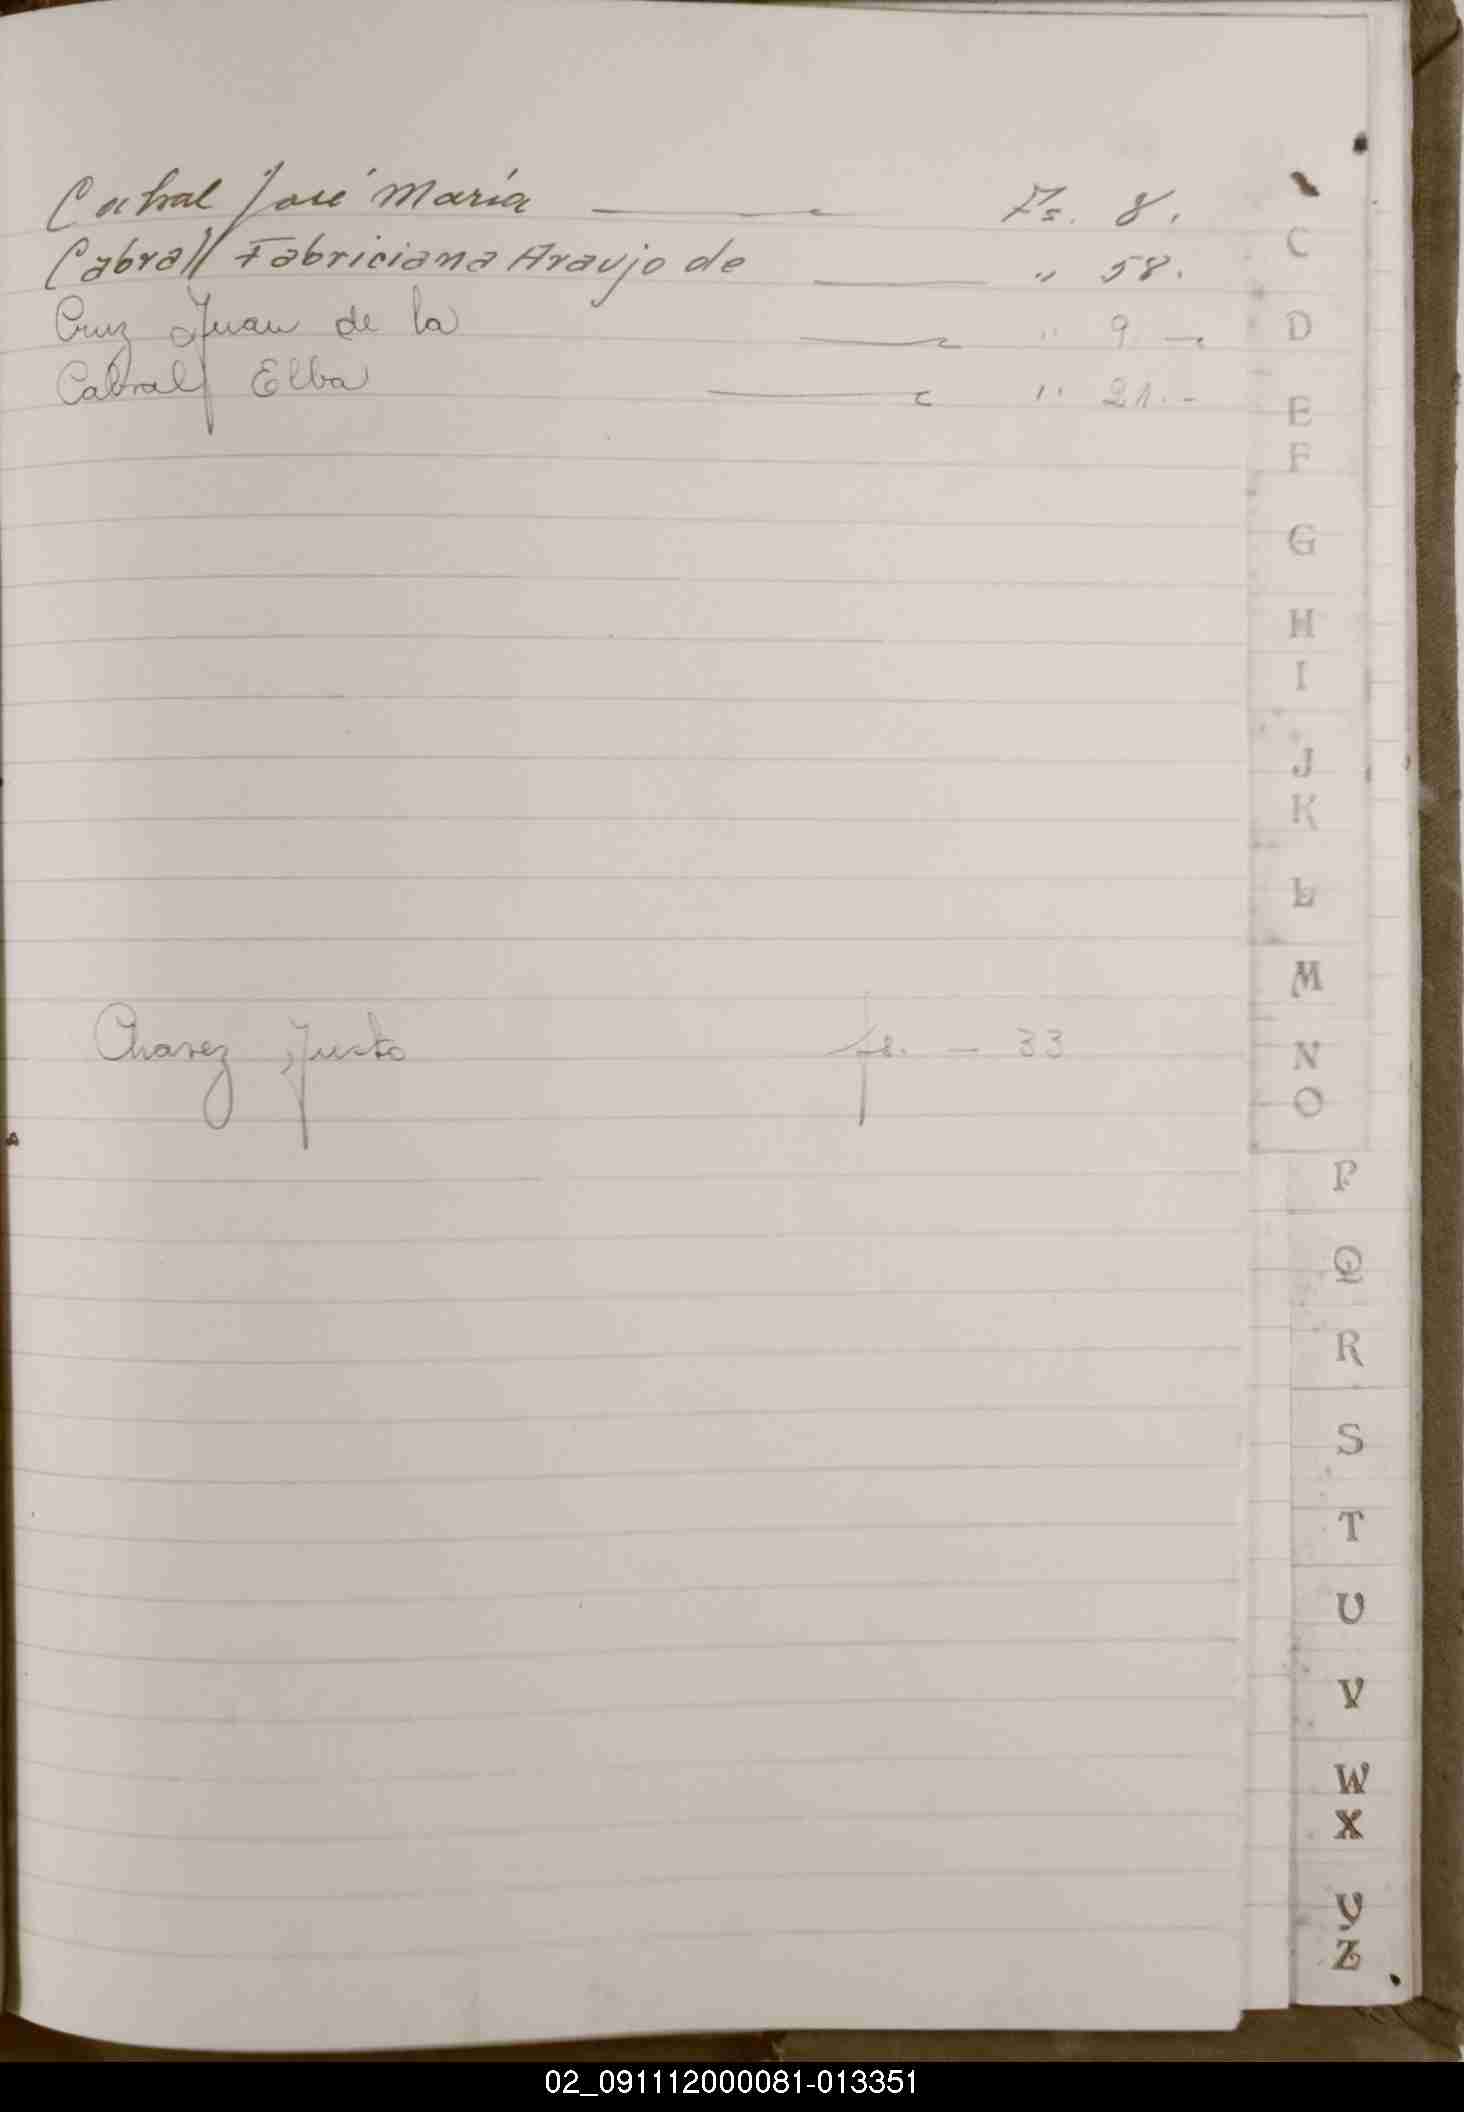 Cabral José María ——— Fs. 8.
Cabral Fabriciana Araujo de ——— " 58.
Cruz Juan de la ——— " 9 —
Cabral Elba ——— " 21.-
Chavez Justo fs. — 33
C
D
E
F
G
H
I
J
K
L
M
N
O
P
Q
R
S
T
U
V
W
X
Y
Z
02_091112000081-013351